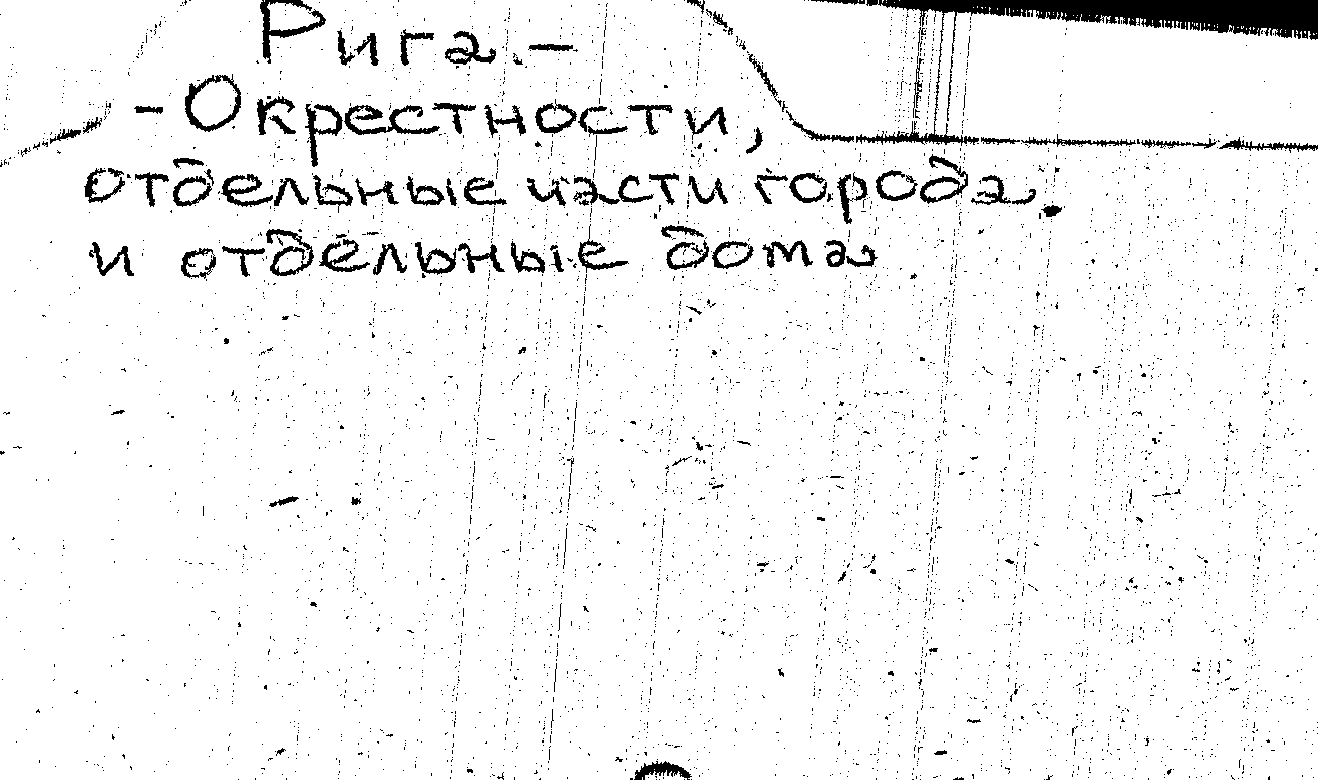 Рига. -
- Окрестности,
отдельные части города.
и отдельные дома